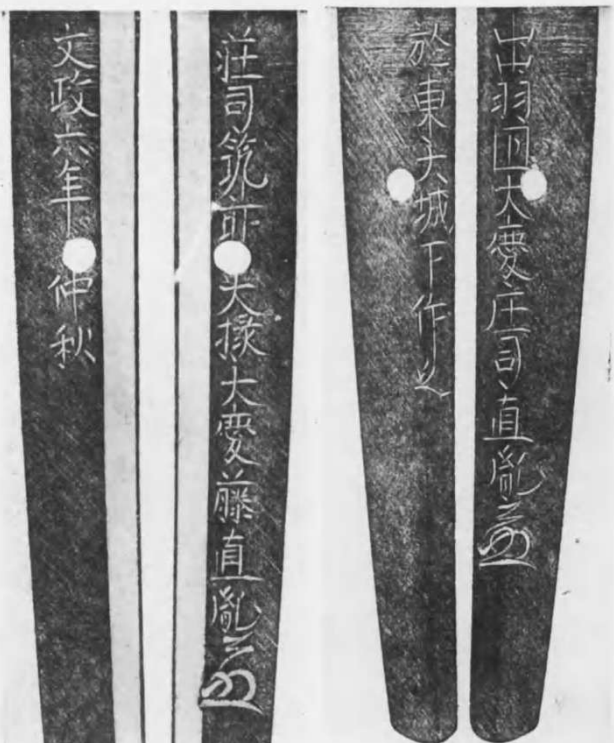 出羽国大慶庄司直胤
於東大城下作之
荘司筑前大掾大慶藤直胤
文政六年仲秋